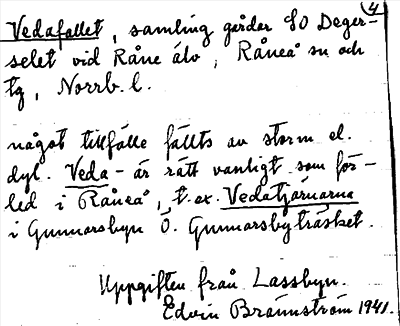 4
Vedafallet, samling gårdar SO Deger-
selet vid Råne älv, Råneå sn och
tg, Norrb. l.
något tillfälle fällts av storm el.
dyl. Veda- är rätt vanligt som för-
led i Råneå, t.ex. Vedatjärnarna
i Gunnarsbyn Ö. Gunnarsbyträsket.
Uppgiften från Lassbyn.
Edvin Brännström 1941.